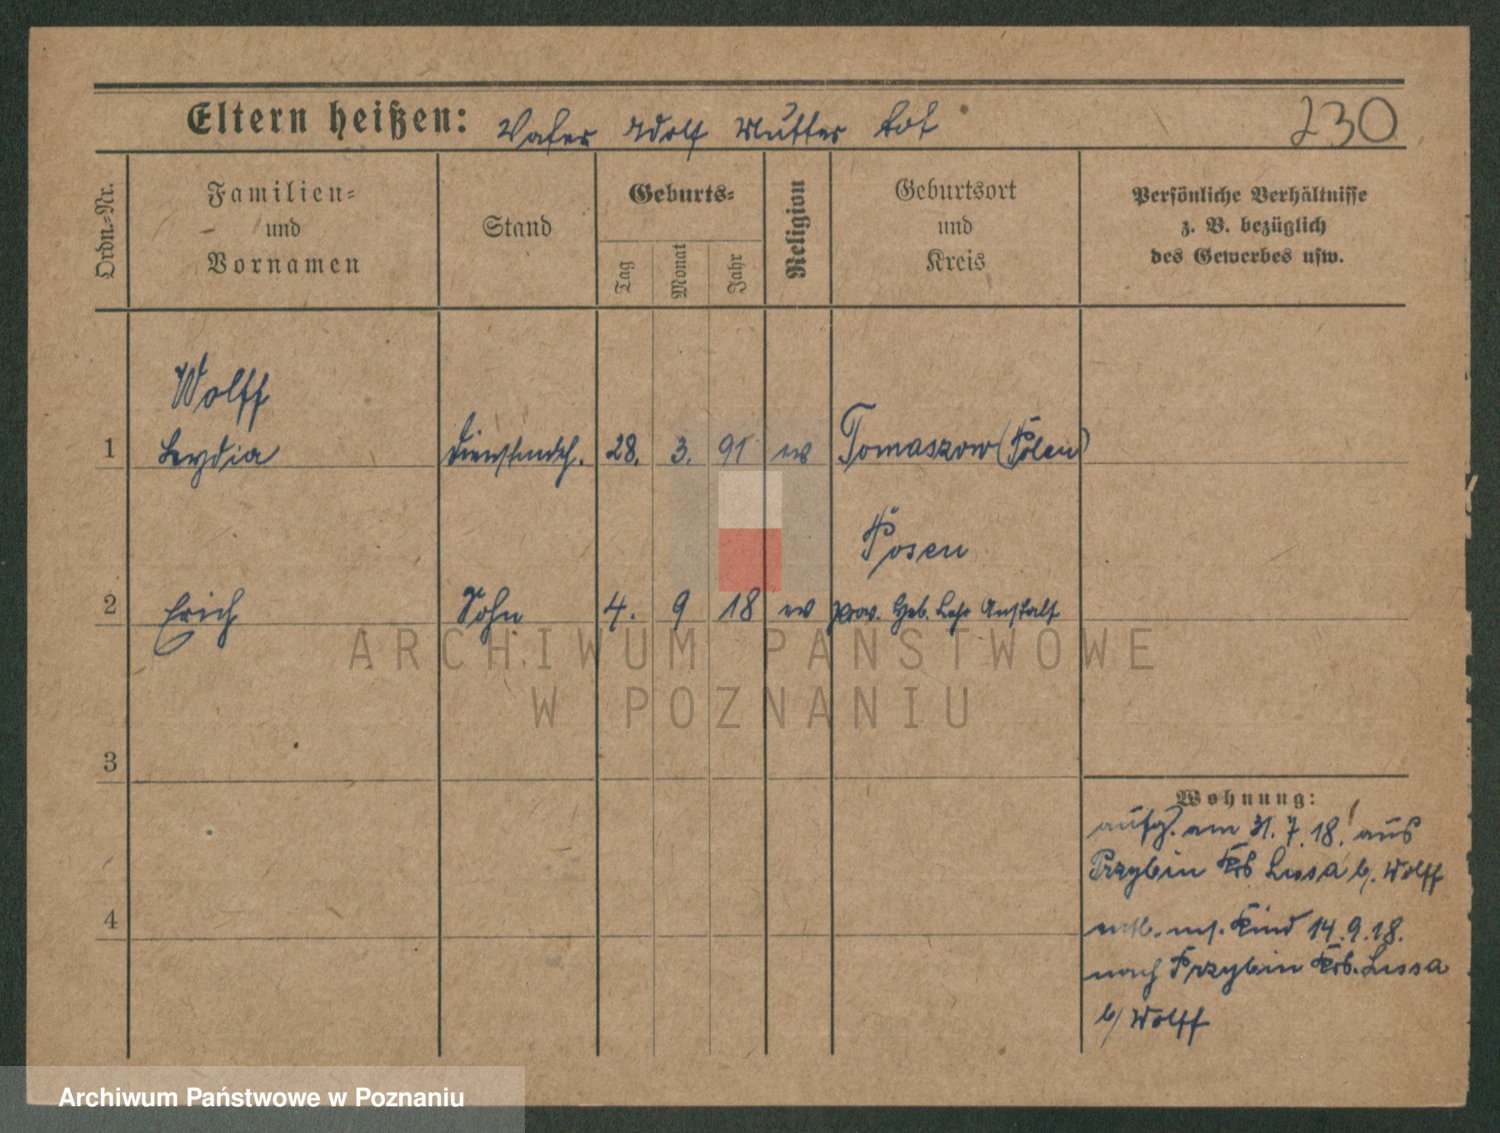 Eltern heißen: Vater Adolf Mutter tot
230
Ordn.-Nr.
Familien-
und
Vornamen
Stand
Geburts-
Tag
Monat
Jahr
Religion
Geburtsort
und
Kreis
Persönliche Verhältnisse
z. B. bezüglich
des Gewerbes usw.
Wolff
1 Leydia Dienstmdch. 28. 3. 91 ev Tomaszow (Polen)
Posen
2 Erich Sohn 4. 9 18 ev Prov. Heb. Lehr Anstalt
ARCHIWUM PAŃSTWOWE
W POZNANIU
3
4
Wohnung:
aufg. am 31. 7. 18. aus
Przybin Krs Lissa b/. Wolff
entl. m/. Kind 14. 9. 18.
nach Przybin Krs. Lissa
b/ Wolff
Archiwum Państwowe w Poznaniu